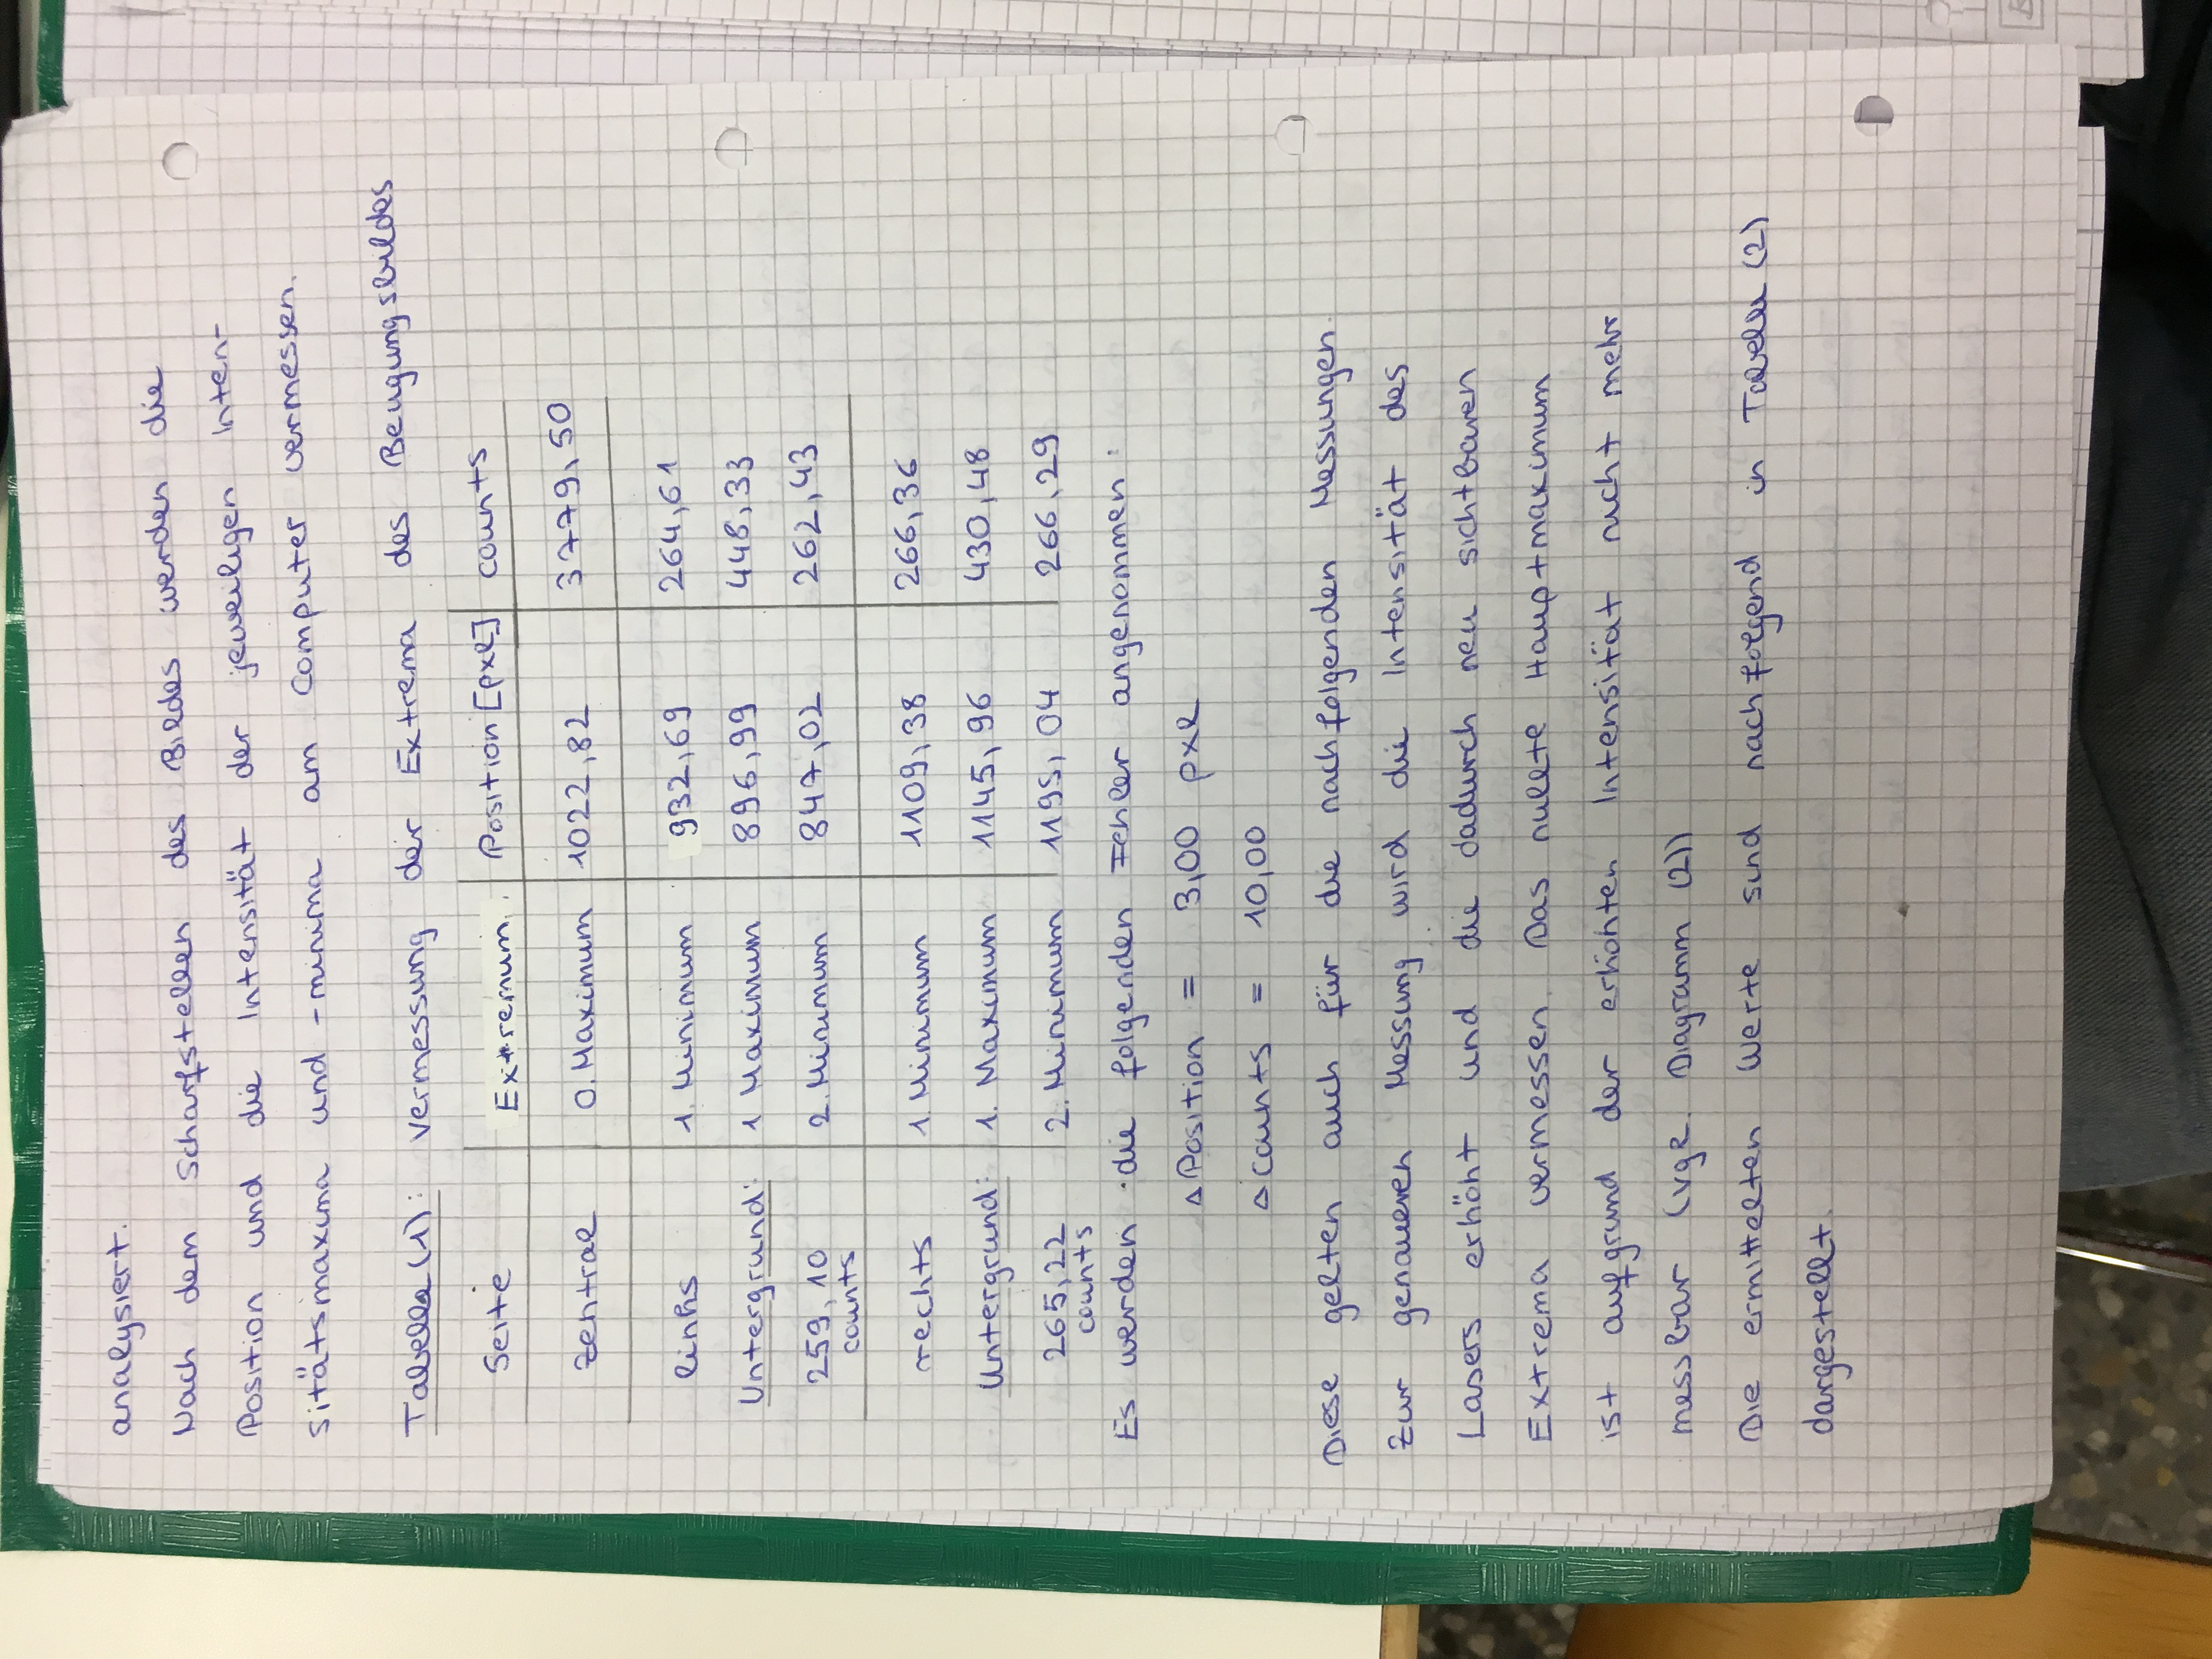 analysiert.
Nach dem Scharfstellen des Bildes werden die
Position und die Intensität der jeweiligen Inten-
sitätsmaxima und -minima am Computer vermessen.
Tabelle (1): Vermessung der Extrema des Beugungsbildes
Seite Extremum Position [pxl] counts
Zentral 0. Maximum 1022,82 3779,50
links 1. Minimum 932,69 264,61
Untergrund: 1 Maximum 896,99 448,33
259,10 2. Minimum 847,02 262,43
counts
rechts 1. Minimum 1109,38 266,36
Untergrund: 1. Maximum 1145,96 430,48
265,22 2. Minimum 1195,04 266,29
counts
Es werden die folgenden Fehler angenommen:
Δ Position = 3,00 pxl
Δ counts = 10,00
Diese gelten auch für die nachfolgenden Messungen.
Zur genaueren Messung wird die Intensität des
Lasers erhöht und die dadurch neu sichtbaren
Extrema vermessen. Das nullte Hauptmaximum
ist aufgrund der erhöhten Intensität nicht mehr
messbar (vgl. Diagramm (2))
Die ermittelten Werte sind nachfolgend in Tabelle (2)
dargestellt.